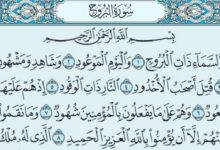 سُورَةُ الْبُرُوجِ
بِسْمِ اللَّهِ الرَّحْمَٰنِ الرَّحِيمِ
وَالسَّمَاءِ ذَاتِ الْبُرُوجِ ١ وَالْيَوْمِ الْمَوْعُودِ ٢ وَشَاهِدٍ وَمَشْهُودٍ
قُتِلَ أَصْحَابُ الْأُخْدُودِ ٤ النَّارِ ذَاتِ الْوَقُودِ ٥ إِذْ هُمْ عَلَيْهَا
قُعُودٌ ٦ وَهُمْ عَلَىٰ مَا يَفْعَلُونَ بِالْمُؤْمِنِينَ شُهُودٌ ٧ وَمَا نَقَمُوا
إِلَّا أَن يُؤْمِنُوا بِاللَّهِ الْعَزِيزِ الْحَمِيدِ ٨ الَّذِي لَهُ مُلْكُ